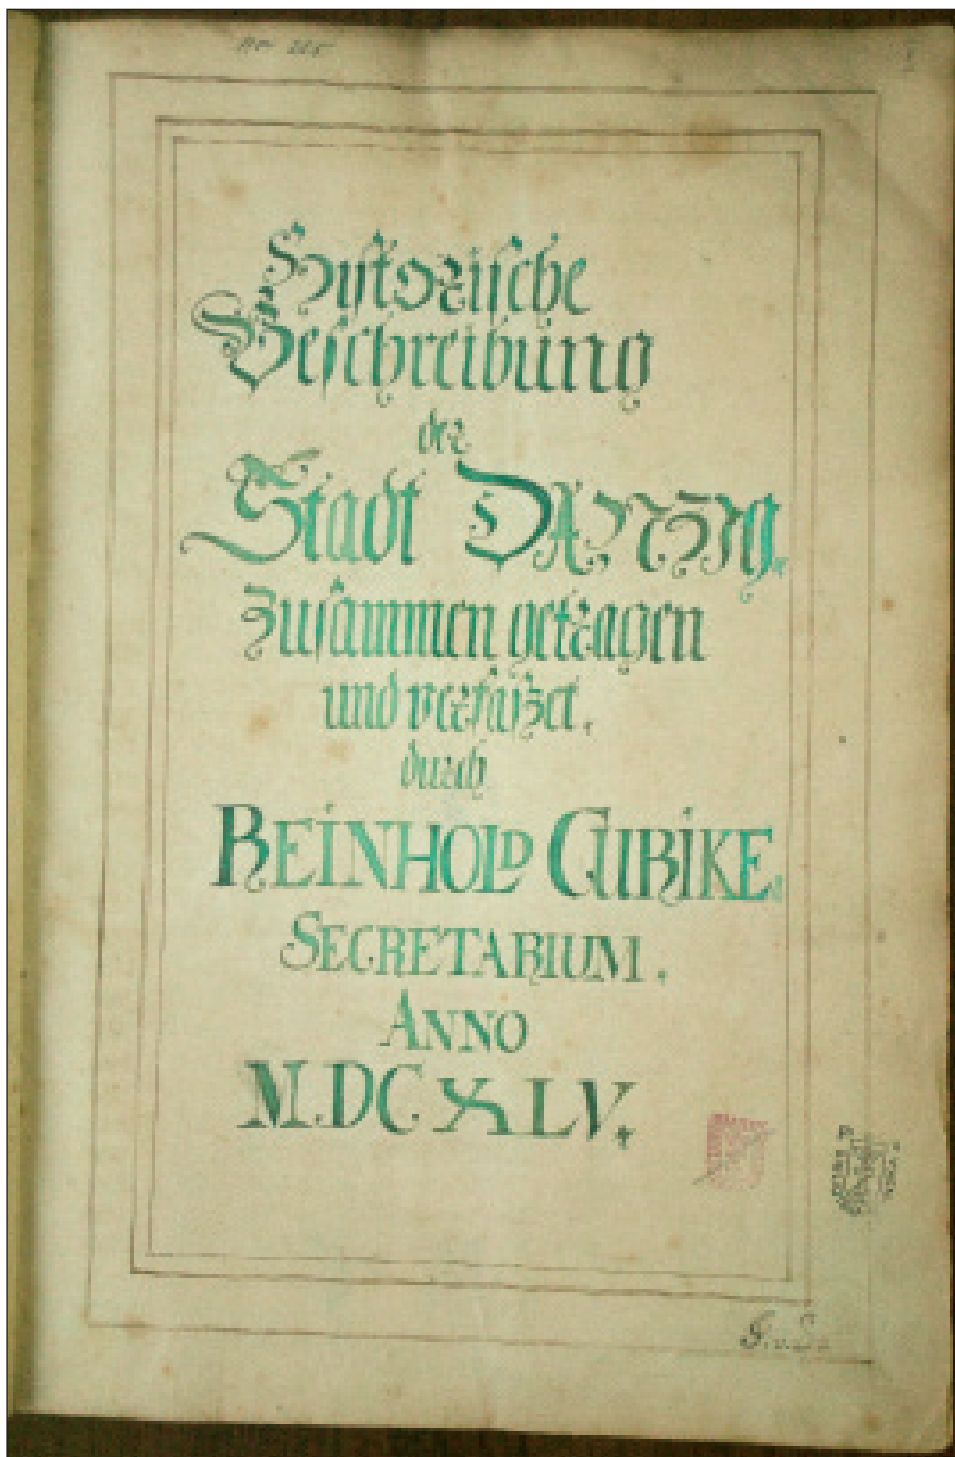 No 225
1
Hystorische
Beschreibung
der
Stadt DANTZIG.
Zusammen getragen
und verfaszet.
durch
REINHOLD CURIKE.
SECRETARIUM.
ANNO
M.DCXLV.